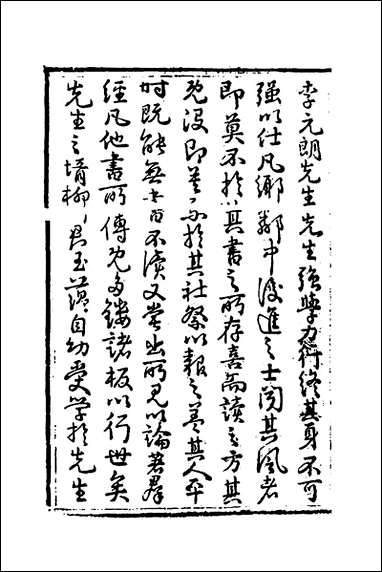 李元朗先生先生強學力行終其身不可
強以仕凡鄉鄰中後進之士聞其風者
即莫不於其書之所存喜而讀之方其
既沒即莫不於其社祭以報之蓋其人平
時既能無書不讀又嘗出所見以論著群
經凡他書所傳既多鏤諸板以行世矣
先生之壻柳君玉蕅自幼受學於先生